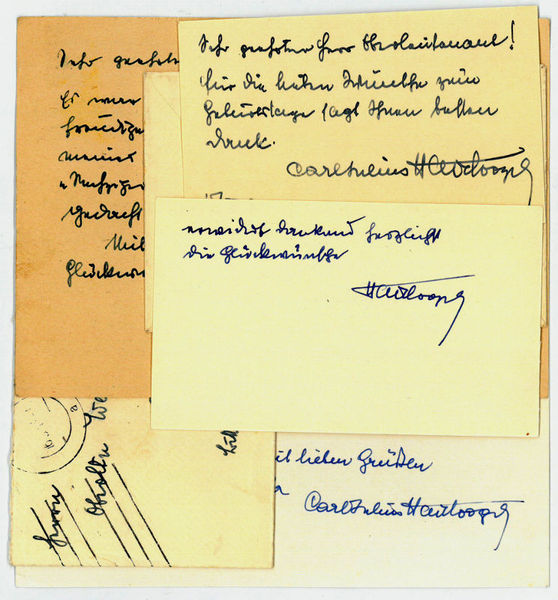 Sehr geehrter Herr Oberleutenant!
für die lieben Wünsche zum
Geburtstage sagt Ihnen besten
Dank.
Carl Julius Haidvogel
erwidert dankend herzlichst
die Glückwünsche
Haidvogel
Sehr geehrte
Es war
meines
gedacht
Mit
Glückwu
it lieben Grüßen
Carl Julius Haidvogel
Herrn
Oberltn We